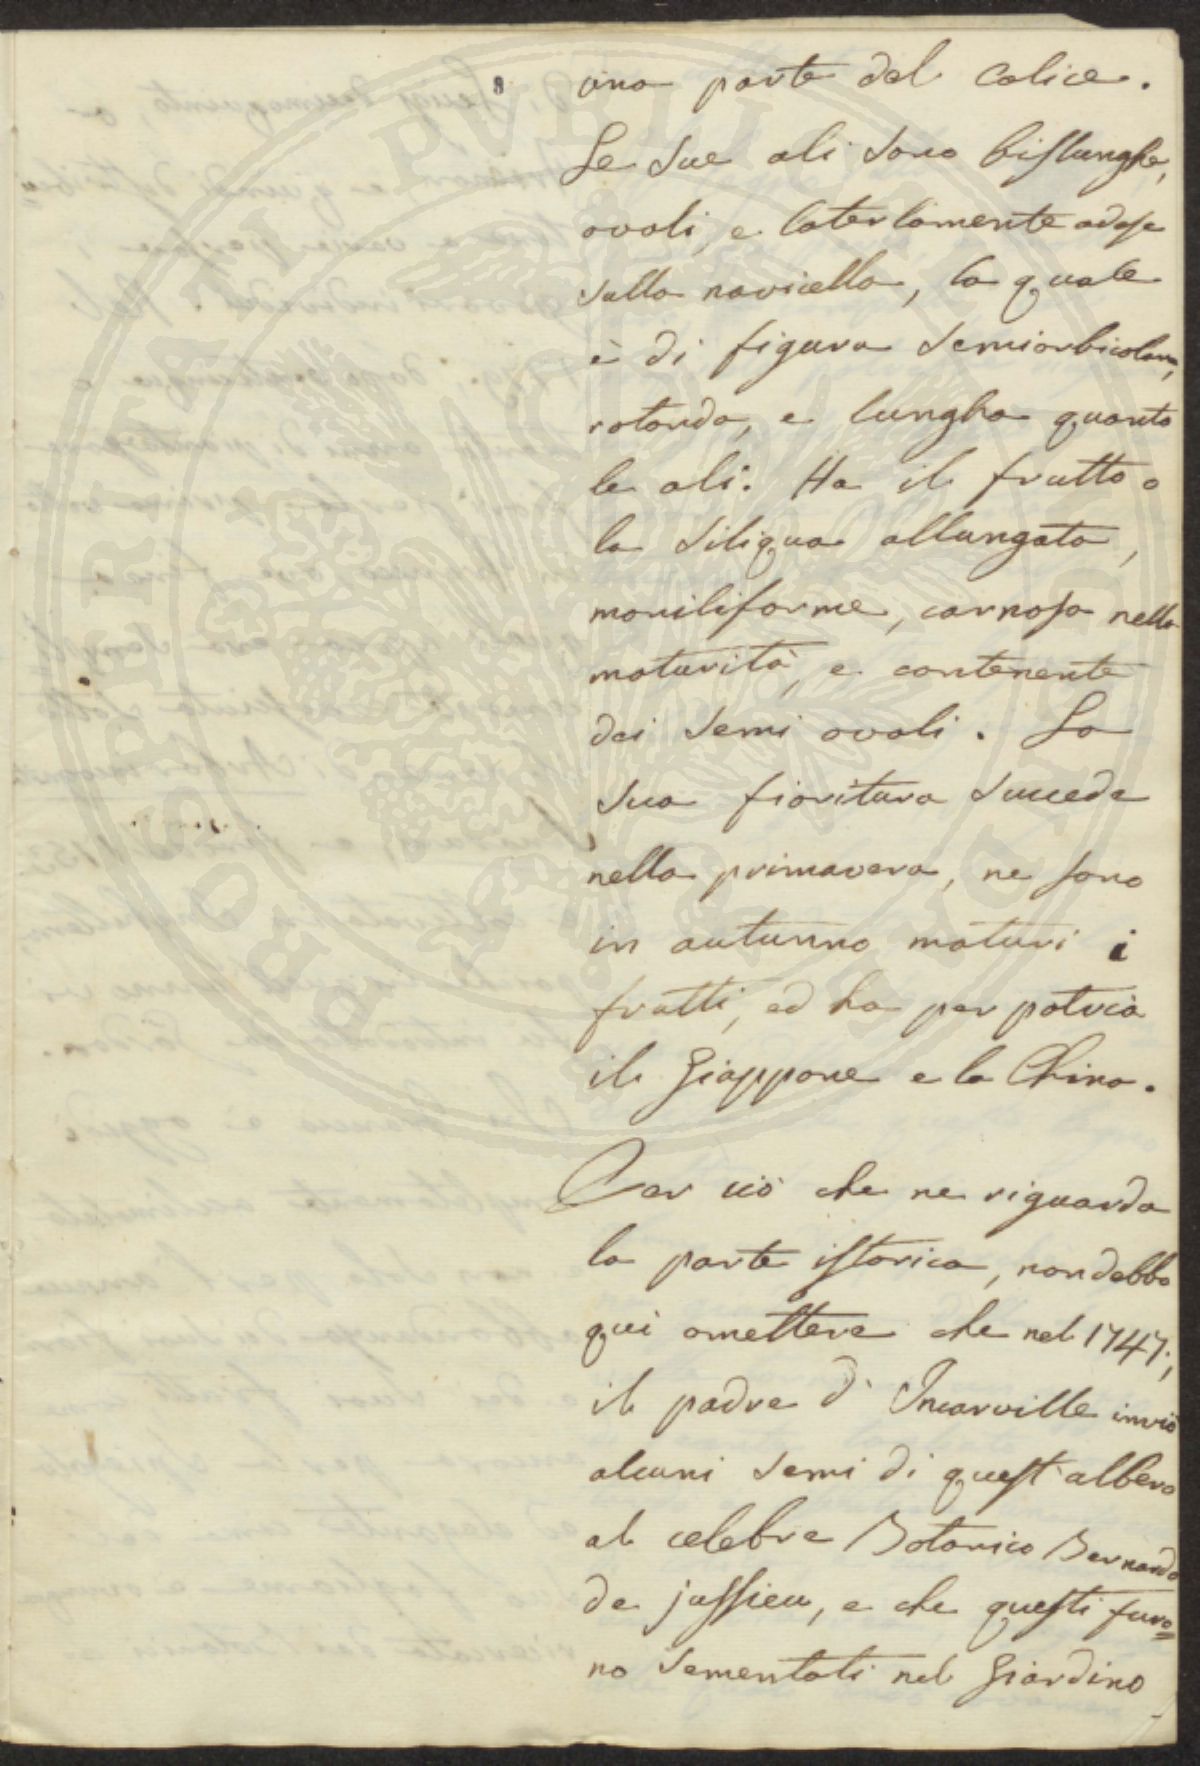 8
una parte del Calice.
Le sue ali sono bislunghe,
ovali, e laterlamente adese
sulla navicella, la quale
è di figura semiorbicolare,
rotonda, e lungha quanto
le ali. Ha il frutto o
la siliqua allungata,
moniliforme, carnosa nella
maturità, e contenente
dei semi ovali. La
sua fioritura succede
nella primavera, ne sono
in autunno maturi i
frutti, ed ha per patria
il Giappone e la China.
Per ciò che ne riguarda
la parte istorica, non debbo
qui omettere che nel 1747.,
il padre d'Incarville inviò
alcuni semi di quest'albero
al celebre Botanico Bernardo
de jussieu, e che questi furo=
no sementati nel Giardino
PROSPERITATI PUBLICAE AUGENDAE